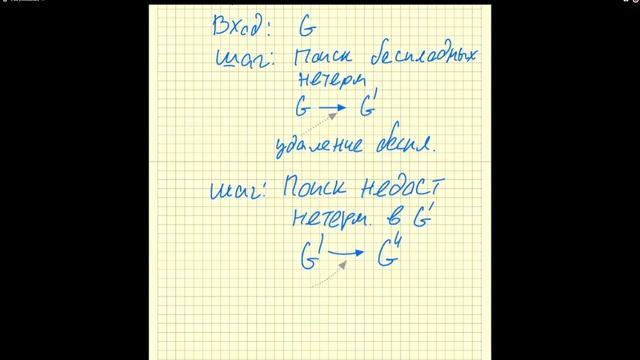 Вход: G
Шаг: Поиск бесплодных
нетерм
G → G'
удаление беспл.
Шаг: Поиск недост
нетерм. в G'
G' → G"